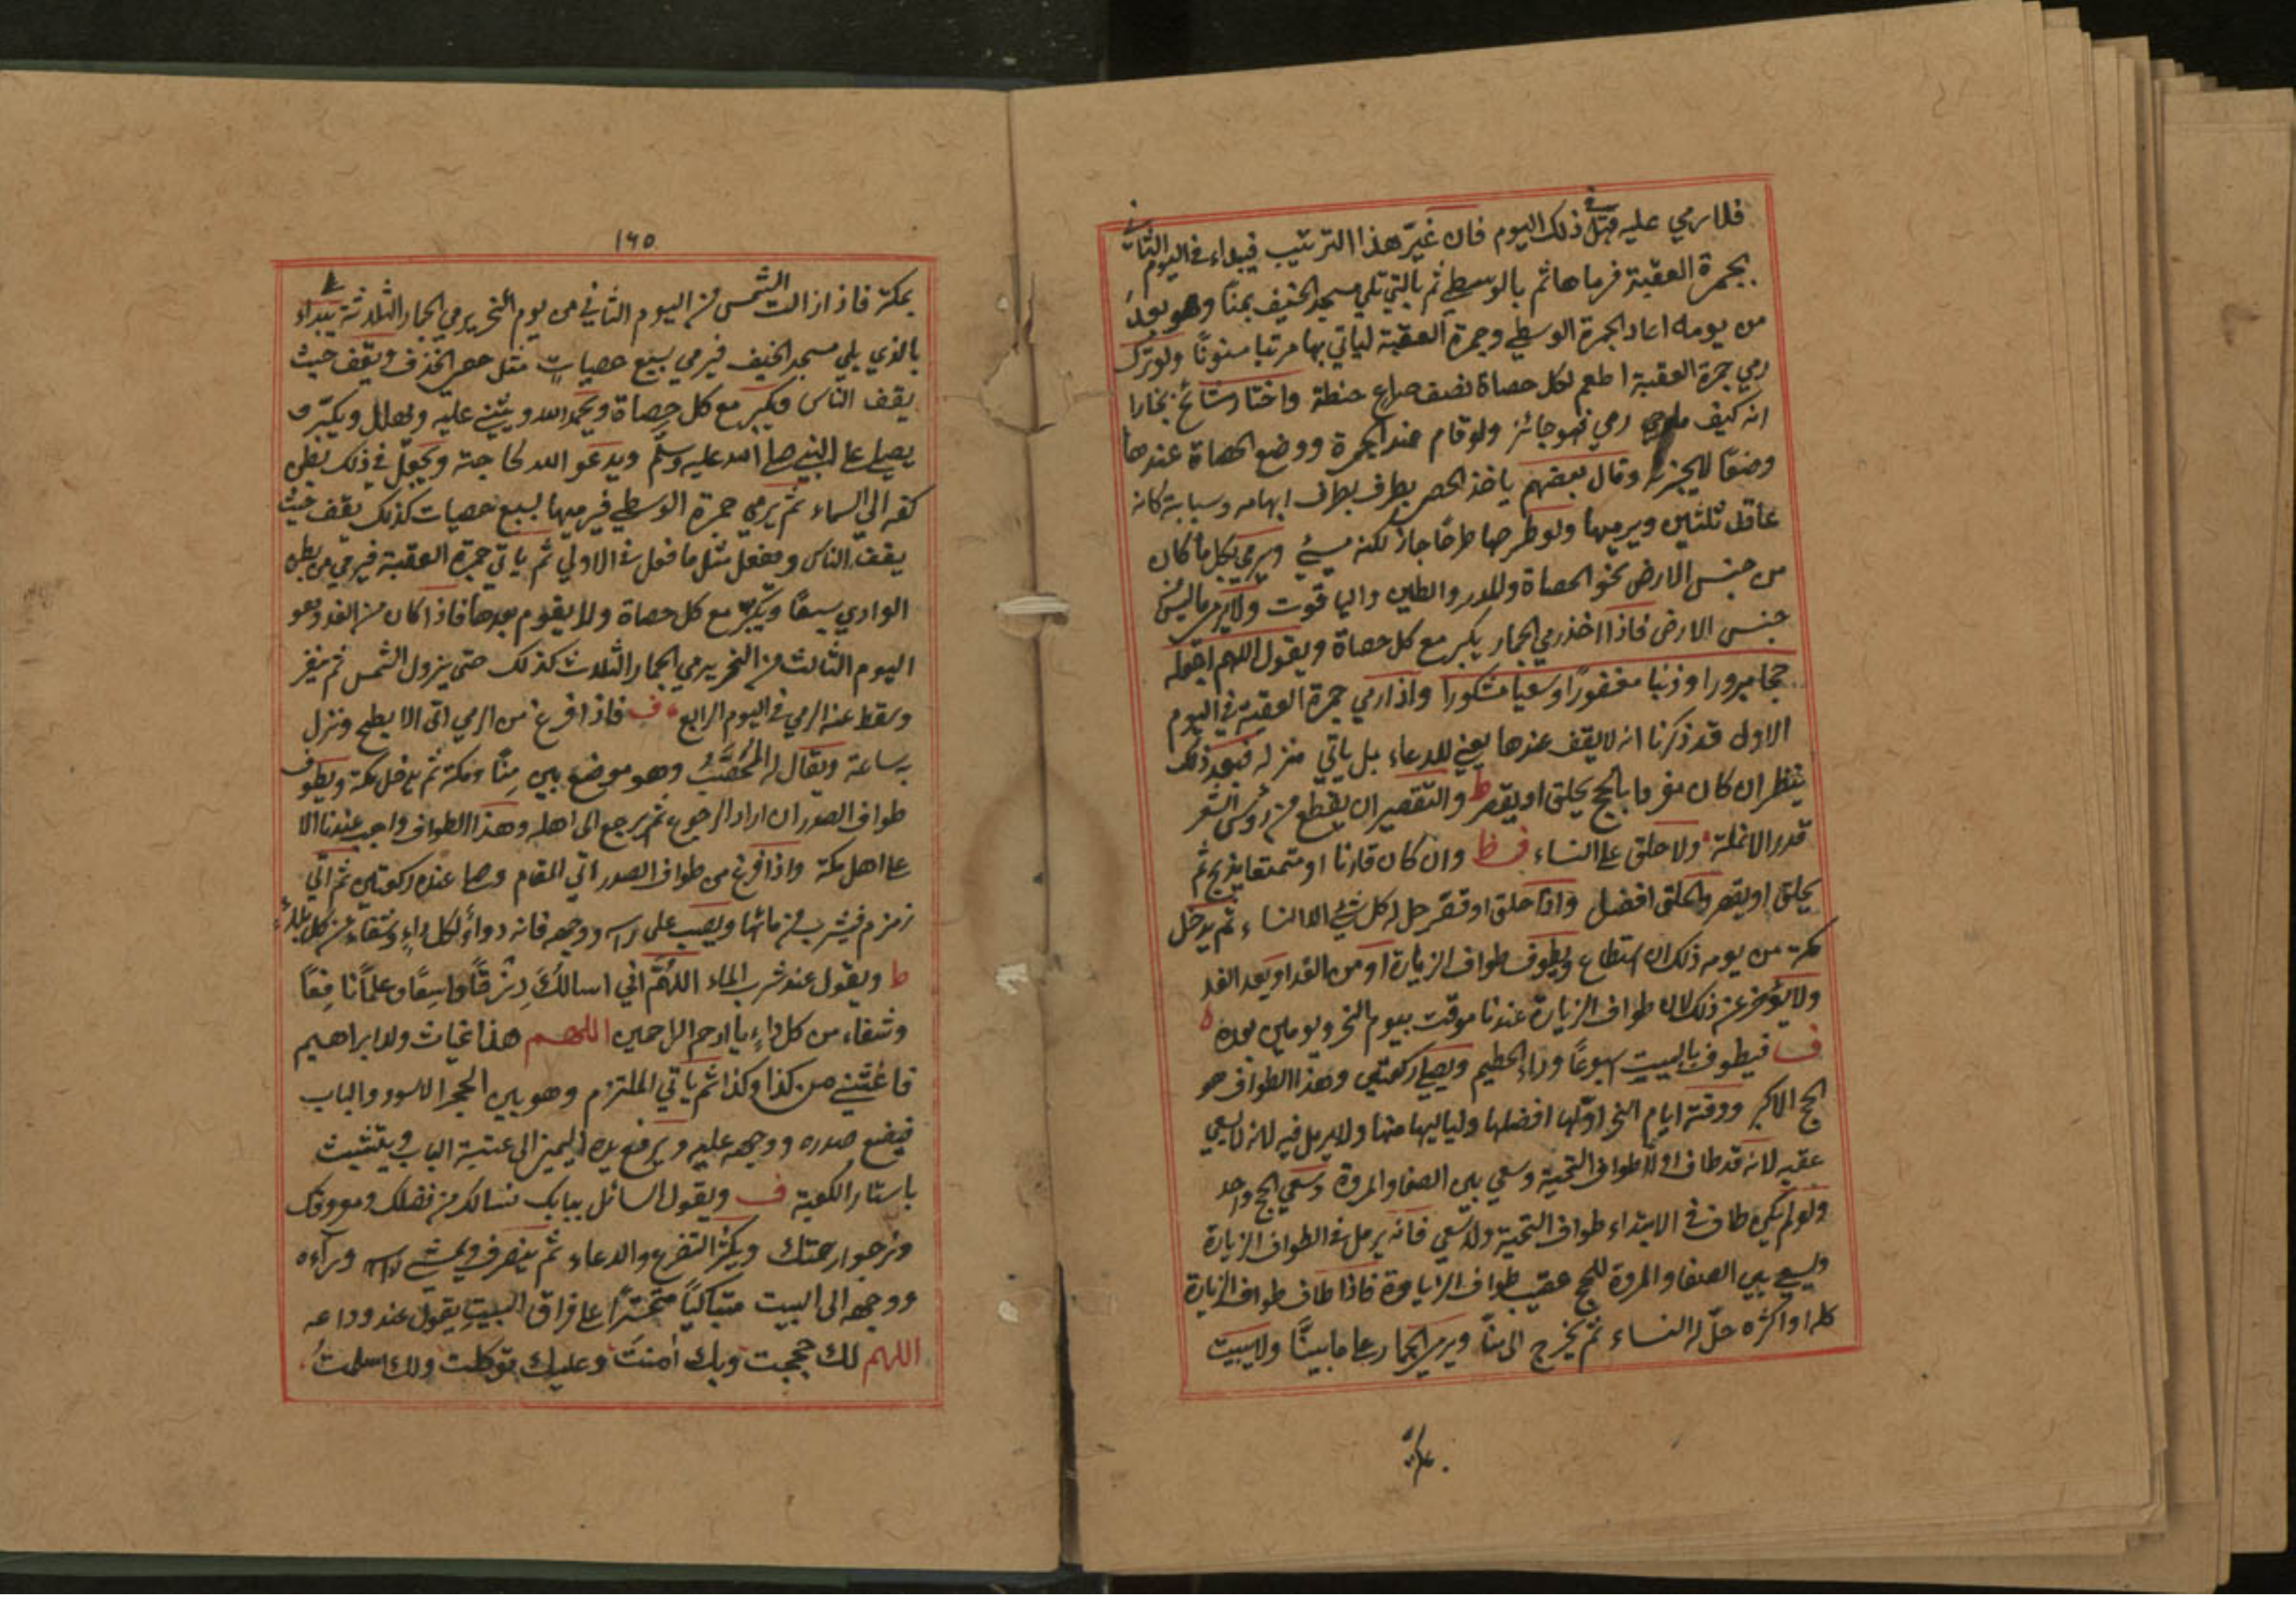 فلا رمي عليه قبل في ذلك اليوم فان غيّر هذا الترتيب فيبداء في اليوم الثاني
بجمرة العقبة فرماها ثم بالوسطي ثم بالتي تلي مسجد الخيف بمنًا وهو بعدُ
من يومه اعاد الجمرة الوسطي وجمرة العقبة لياتي بها مرتبا مسنونًا ولو ترك
رمي جمرة العقبة اطعم لكل حصاة نصف صاع حنطة واختار مشائخ بخارا
انه كيف رمي فهو جائز ولو قام عند الجمرة ووضع الحصاة عندها
وضعًا لايجزئه وقال بعضهم ياخذ الحصى بطرف بطرف ابهامه وسبابة كانه
عاقل ثلثين ويرميها ولو طرحها طرحًا جاز لكنه مسئ ويرمي بكل ما كان
من جنس الارض نحو الحصاة والمدر والطين والياقوت ولا يرمي ماليس من
جنس الارض فاذا اخذ رمي الجمار يكبر مع كل حصاة ويقول اللهم اجعله
حجا مبرورا وذنبا مغفورًا وسعيا مشكورا واذا رمي جمرة العقبة في اليوم
الاول قد ذكرنا انه لايقف عندها يعني للدعاء بل ياتي منزله فبعد ذلك
ينظر ان كان مفردا بالحج يحلق او يقصر ط والتقصير ان يقطع من رؤس الشعر
قدر الانملة ولا حلق على النساء ف ط وان كان قارنا او متمتعا يذبح ثم
يحلق او يقصر والحلق افضل واذا حلق او قصّر حل له كل شئ الا النساء ثم يدخل
مكة من يومه ذلك ان استطاع ويطوف طواف الزيارة او من الغد او بعد الغد
ولا يؤخر عن ذلك لان طواف الزيارة عندنا موقت بيوم النحر ويومين بعده ه
ف فيطوف بالبيت اسبوعًا وراء الحطيم ويصلي ركعتين وهذا الطواف هو
الحج الاكبر ووقته ايام النحر اولها افضلها ولياليها منها ولا يرمل فيه لانه لا سعي
عقبه لانه قد طاف اولا طواف التحية وسعي بين الصفا والمروة وسعي الحج واحد
ولو لم يكن طاف في الابتداء طواف التحية ولا سعي فانه يرمل في الطواف الزيارة
ويسعي بين الصفا والمروة للحج عقيب طواف الزيارة فاذا طاف طواف الزيارة
كله او اكثره حلّ له النساء ثم يخرج الى منًا ويرمي الجمار على ما بينّا ولا يبيت
بمكة
١٦٥
بمكة فاذا زالت الشمس من اليوم الثاني من يوم النحر يرمي الجمار الثلاثة يبداء
بالذي يلي مسجد الخيف فيرمي بسبع حصيات مثل حصى الخذف ويقف حيث
يقف الناس ويكبر مع كل حصاة ويحمد الله ويثني عليه ويهلل ويكبّر و
يصلي على النبي صلى الله عليه وسلّم ويدعو الله لحاجته ويجعل في ذلك بطن
كفه الي السماء ثم يرمي جمرة الوسطي فيرميها بسبع حصيات كذلك يقف حيث
يقف الناس ويفعل مثل ما فعل في الاولي ثم ياتي جمرة العقبة فيرمي من بطن
الوادي سبعًا ويكبّر مع كل حصاة ولا يقوم بعدها فاذا كان من الغد وهو
اليوم الثالث من النحر يرمي الجمار الثلاث كذلك حتى يزول الشمس ثم ينفر
وسقط عنه الرمي في اليوم الرابع ف فاذا فرغ من الرمي اتى الابطح ونزل
به ساعة ويقال له المُحَصَّبُ وهو موضع بين مِنًا ومكة ثم يدخل مكة ويطوف
طواف الصدر ان اراد الرجوع ثم يرجع الى اهله وهذا الطواف واجب عندنا الا
على اهل مكة واذا فرغ من طواف الصدر اتي المقام وصلى عنده ركعتين ثم اتي
زمزم فيشرب من مائها ويصب على راسه ووجهه فانه دواءٌ لكل داءٍ وشفاء من كل بلاءٍ
ط ويقول عند شرب الماء اللهُمّ اني اسالكَ رِزقًا واسِعًا وعلمًا نافِعًا
وشفاء من كل داءٍ يا ارحم الراحمين اللهم هذا غياث ولد ابراهيم
فاغثني من كذا وكذا ثم ياتي الملتزم وهو بين الحجر الاسود والباب
فيضع صدره ووجهه عليه ويرفع يده اليمنى الى عتبة الباب ويتشبث
باستار الكعبة ف ويقول السائل ببابك نسالك من فضلك ومعروفك
ونرجوا رحمتك ويكثر التضرع والدعاء ثم ينصرف ويمشي وراءه
ووجهه الى البيت متباكيًا متحسّرًا على فراق البيت يقول عند وداعه
اللهم لك حججت وبك امنت وعليك توكلت ولك اسلمتُ